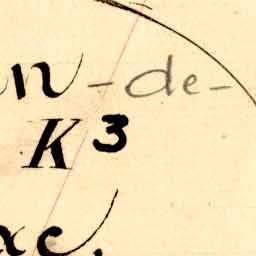 n-de-
K³
xc.